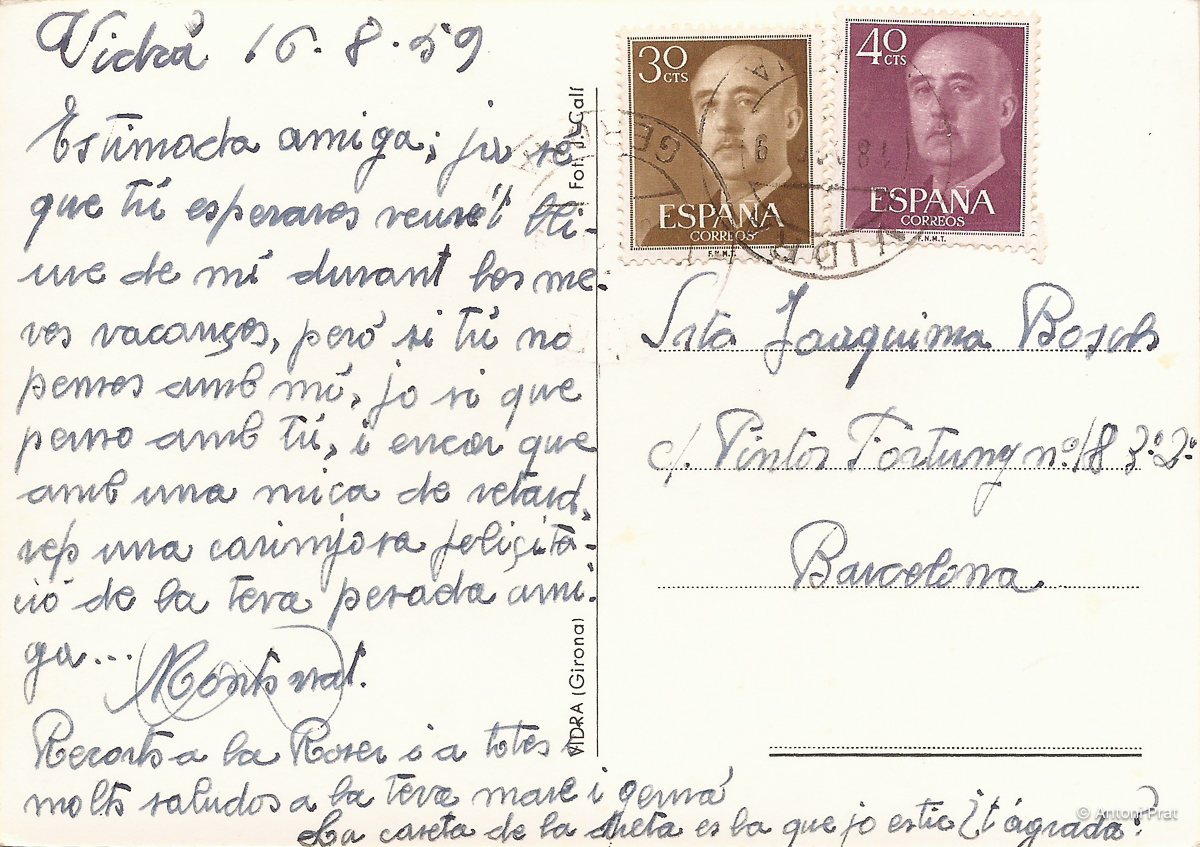 Vidrá 16·8·59
Estimada amiga; ja sé
que tú esperaves veure't lli-
ure de mí durant les me-
ves vacançes, peró si tú no
penses amb mí, jo si que
penso amb tú, i encar que
amb una mica de retard,
rep una carinyosa feliçita-
ció de la teva pesada ami-
ga... Montserrat.
Recorts a la Roser i a totes i
molts saludos a la teva mare i germá
La caseta de la dreta es la que jo estic ¿t'agrada?
Foto J. Calí
VIDRA (Girona)
30 CTS
ESPAÑA
CORREOS
F.N.M.T.
40 CTS
ESPAÑA
CORREOS
F.N.M.T.
Srta Joaquima Bosch
c/. Pintor Fortuny nº 18 3º 2ª
Barcelona
© Antoni Prat